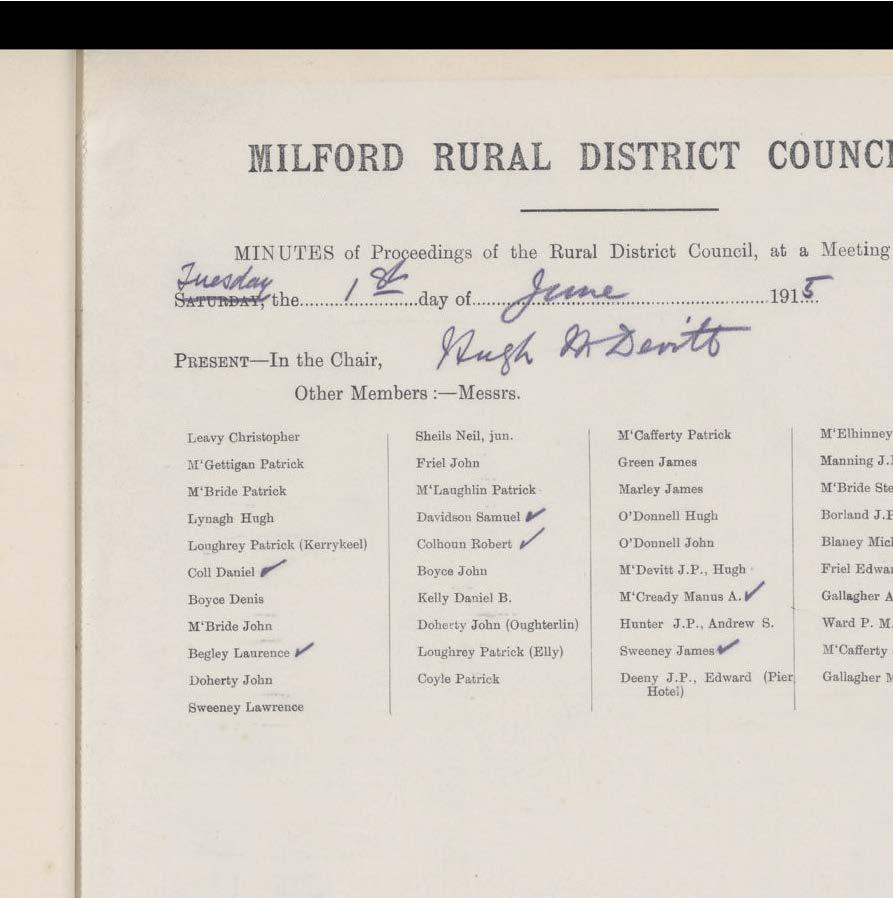 MILFORD RURAL DISTRICT COUNCI
MINUTES of Proceedings of the Rural District Council, at a Meeting
Tuesday
SATURDAY, the 1st day of June 1915.
PRESENT—In the Chair, Hugh McDevitt
Other Members :—Messrs.
Leavy Christopher
M‘Gettigan Patrick
M‘Bride Patrick
Lynagh Hugh
Loughrey Patrick (Kerrykeel)
Coll Daniel ✓
Boyce Denis
M‘Bride John
Begley Laurence ✓
Doherty John
Sweeney Lawrence
Sheils Neil, jun.
Friel John
M‘Laughlin Patrick
Davidson Samuel ✓
Colhoun Robert ✓
Boyce John
Kelly Daniel B.
Doherty John (Oughterlin)
Loughrey Patrick (Elly)
Coyle Patrick
M‘Cafferty Patrick
Green James
Marley James
O’Donnell Hugh
O’Donnell John
M‘Devitt J.P., Hugh
M‘Cready Manus A. ✓
Hunter J.P., Andrew S.
Sweeney James ✓
Deeny J.P., Edward (Pier
Hotel)
M‘Elhinney
Manning J.
M‘Bride Ste
Borland J.P
Blaney Mic
Friel Edwa
Gallagher A
Ward P. M.
M‘Cafferty
Gallagher M